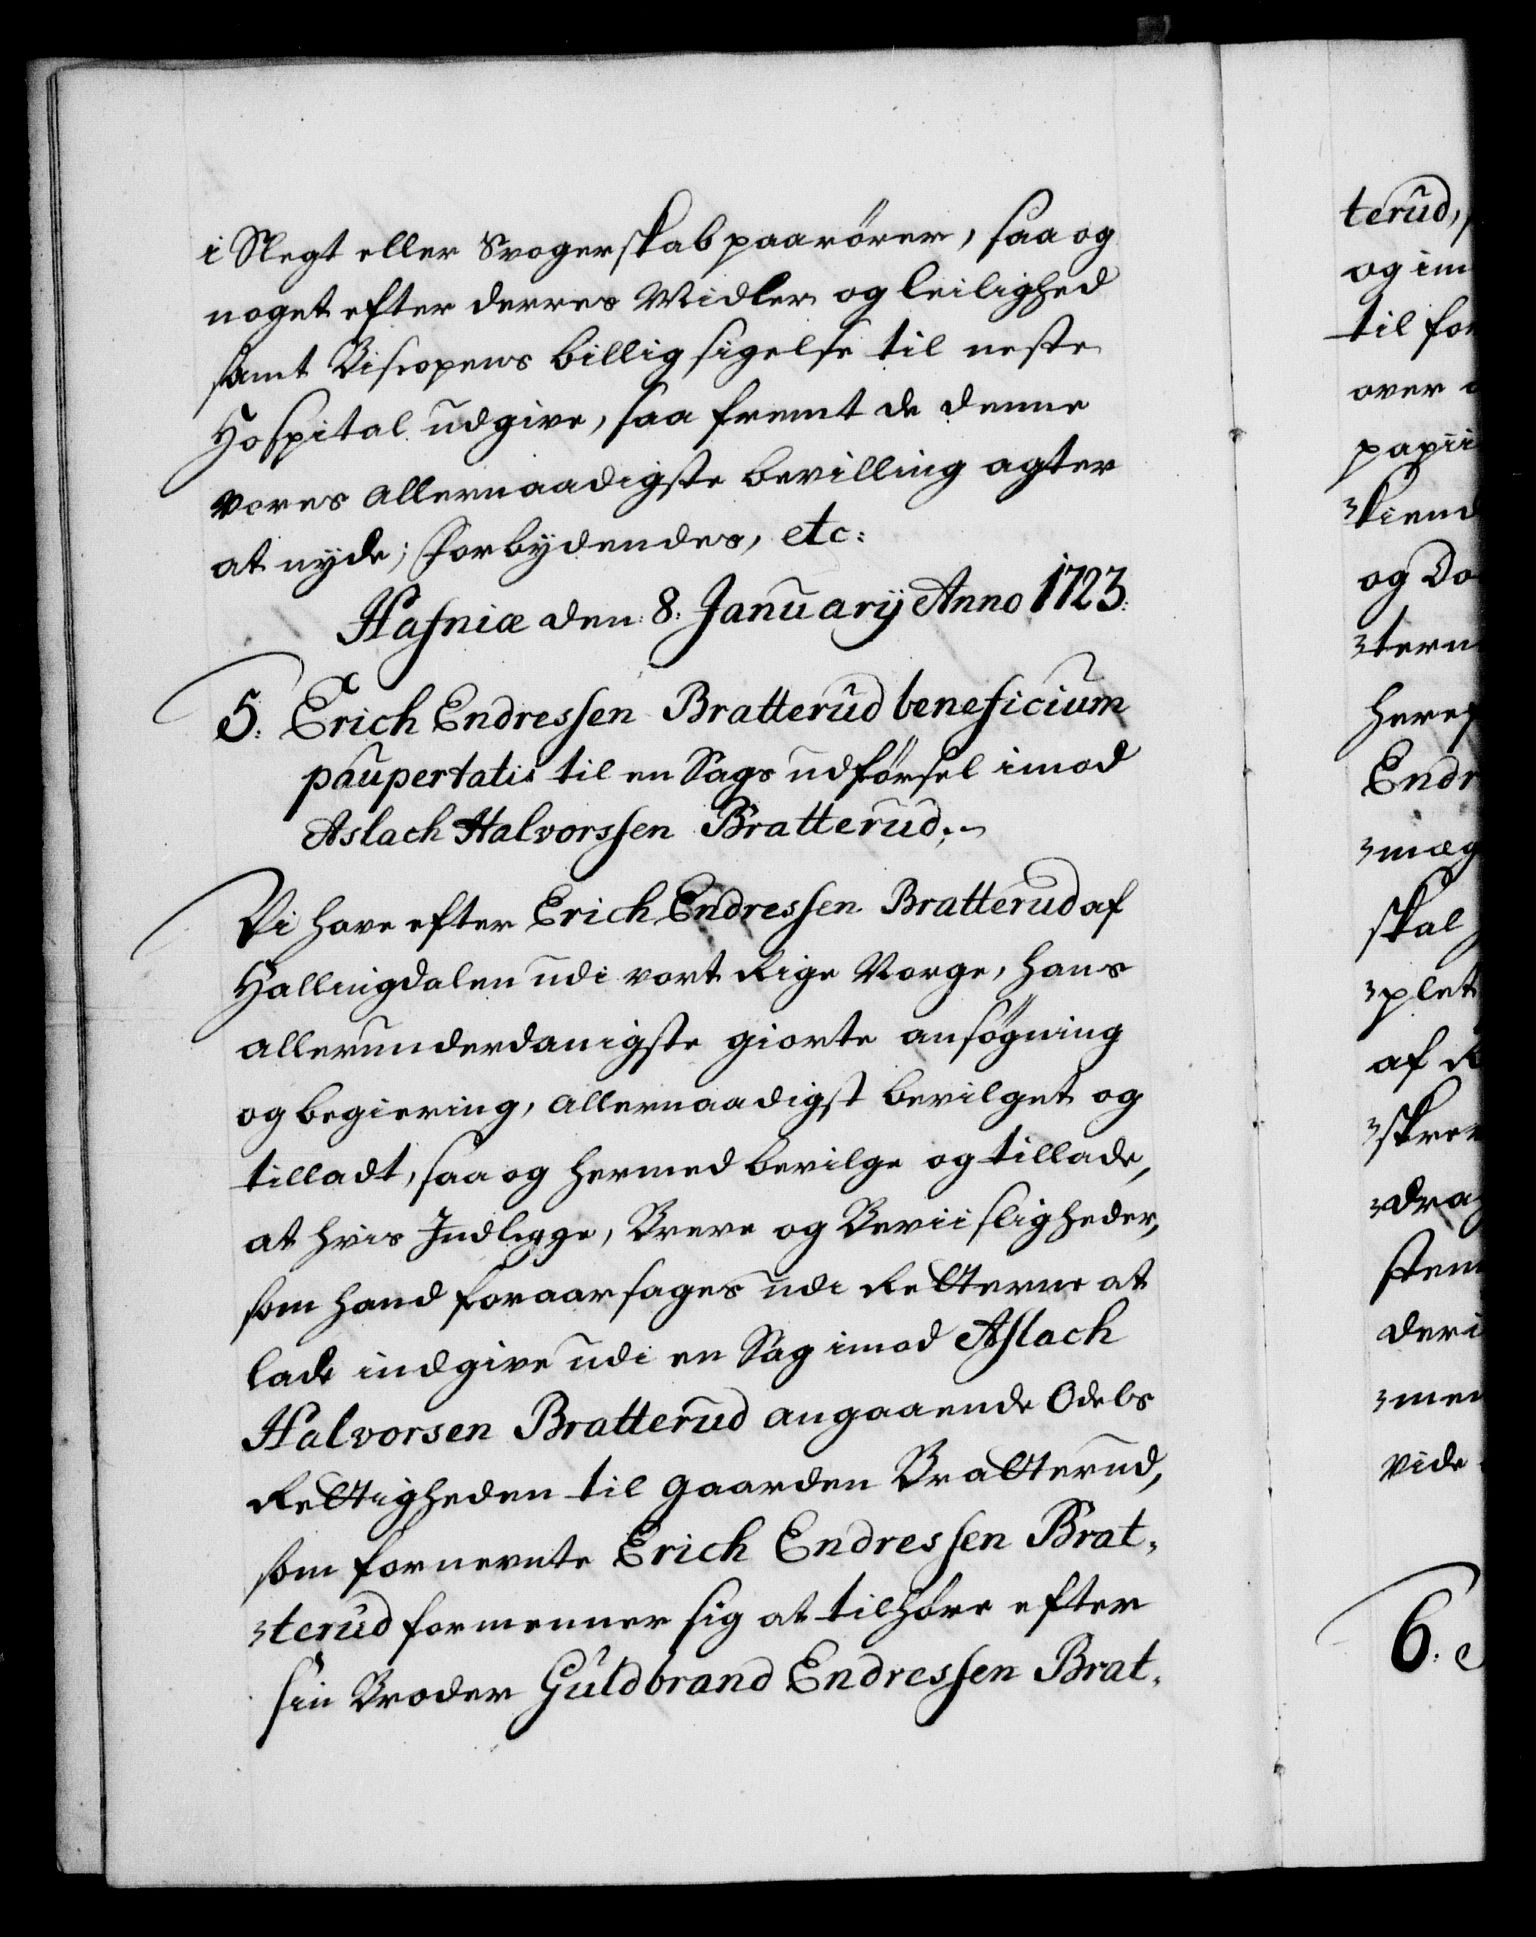 i Slegt eller Svogerskab paarörer, saa og
noget efter derres Midler og leilighed
samt Biscopens billig sigelse til neste
Hospital udgive, saa fremt de denne
vores allernaadigste bevilling agter
at nyde; Forbydendes, etc:
Hafniæ den 8. Januarij Anno 1723.
5. Erich Endressen Bratterud beneficium
paupertatis til en Sags udförsel imod
Aslach Halvorssen Bratterud.
Vi have efter Erich Endressen Bratterud af
Hallingdalen udi vort Rige Norge, hans
allerunderdanigste giorte ansögning
og begiering, allernaadigst bevilget og
tilladt, saa og hermed bevilge og tillade,
at hvis Indlegge, Breve og Beviisligheder,
som hand foraarsages udi Retterne at
lade indgive udi en Sag imod Aslach
Halvorsen Bratterud angaaende Odels
Rettigheden til gaarden Bratterud,
som fornevnte Erich Endressen Brat,
terud formenner sig at tilhöre efter
sin Broder Guldbrand Endressen Brat,
terud,
og im
til for
over
papii
skiend
og Do
tern
heref
Endr
mæg
skal
plet
af R
skrev
drag
sten
deri
men
vide
6.